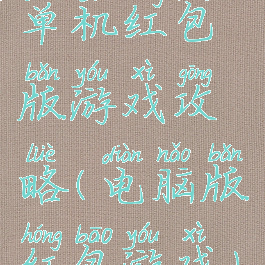 单机红包
bǎn yóu xì gōng
版游戏攻
lüè diàn nǎo bǎn
略(电脑版
hóng bāo yóu xì
红包游戏)